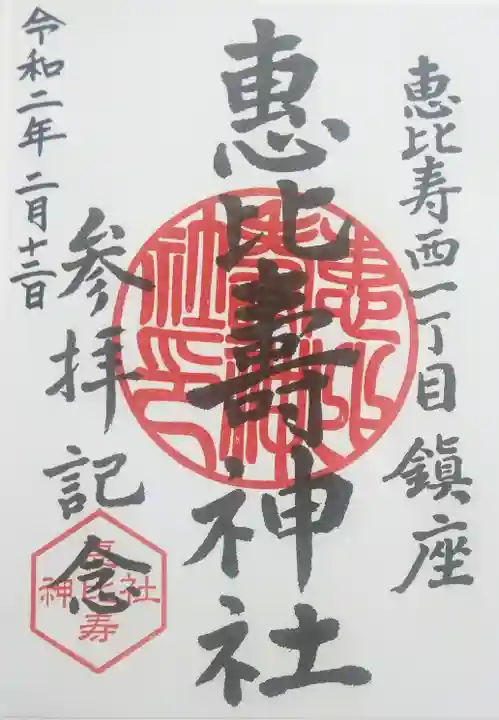 恵比寿西一丁目鎮座
惠比壽神社
参拝記念
令和二年二月十二日
恵比寿
神社